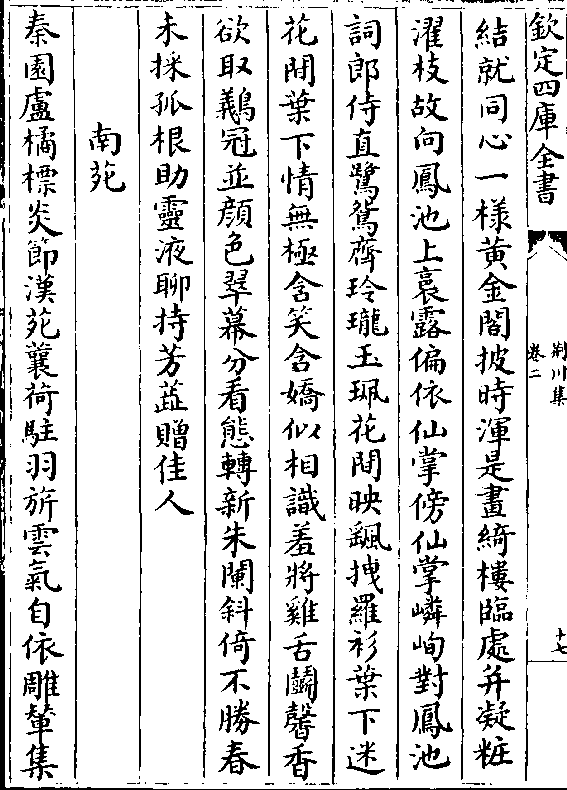 欽定四庫全書
荆川集
卷二
十七
結就同心一様黄金閣披時渾是畫綺樓臨處并凝粧
濯枝故向鳳池上裛露偏依仙掌傍仙掌嶙峋對鳳池
詞郎侍直鷺鴛齊玲瓏玉珮花間映颻拽羅衫葉下迷
花開葉下情無極含笑含嬌似相識羞將雞舌鬭馨香
欲取鷫冠並顔色翠幕分看態轉新朱闌斜倚不勝春
未採孤根助靈液聊持芳蕋贈佳人
南苑
秦園盧橘標炎節漢苑蘘荷駐羽旂雲氣自依雕輦集